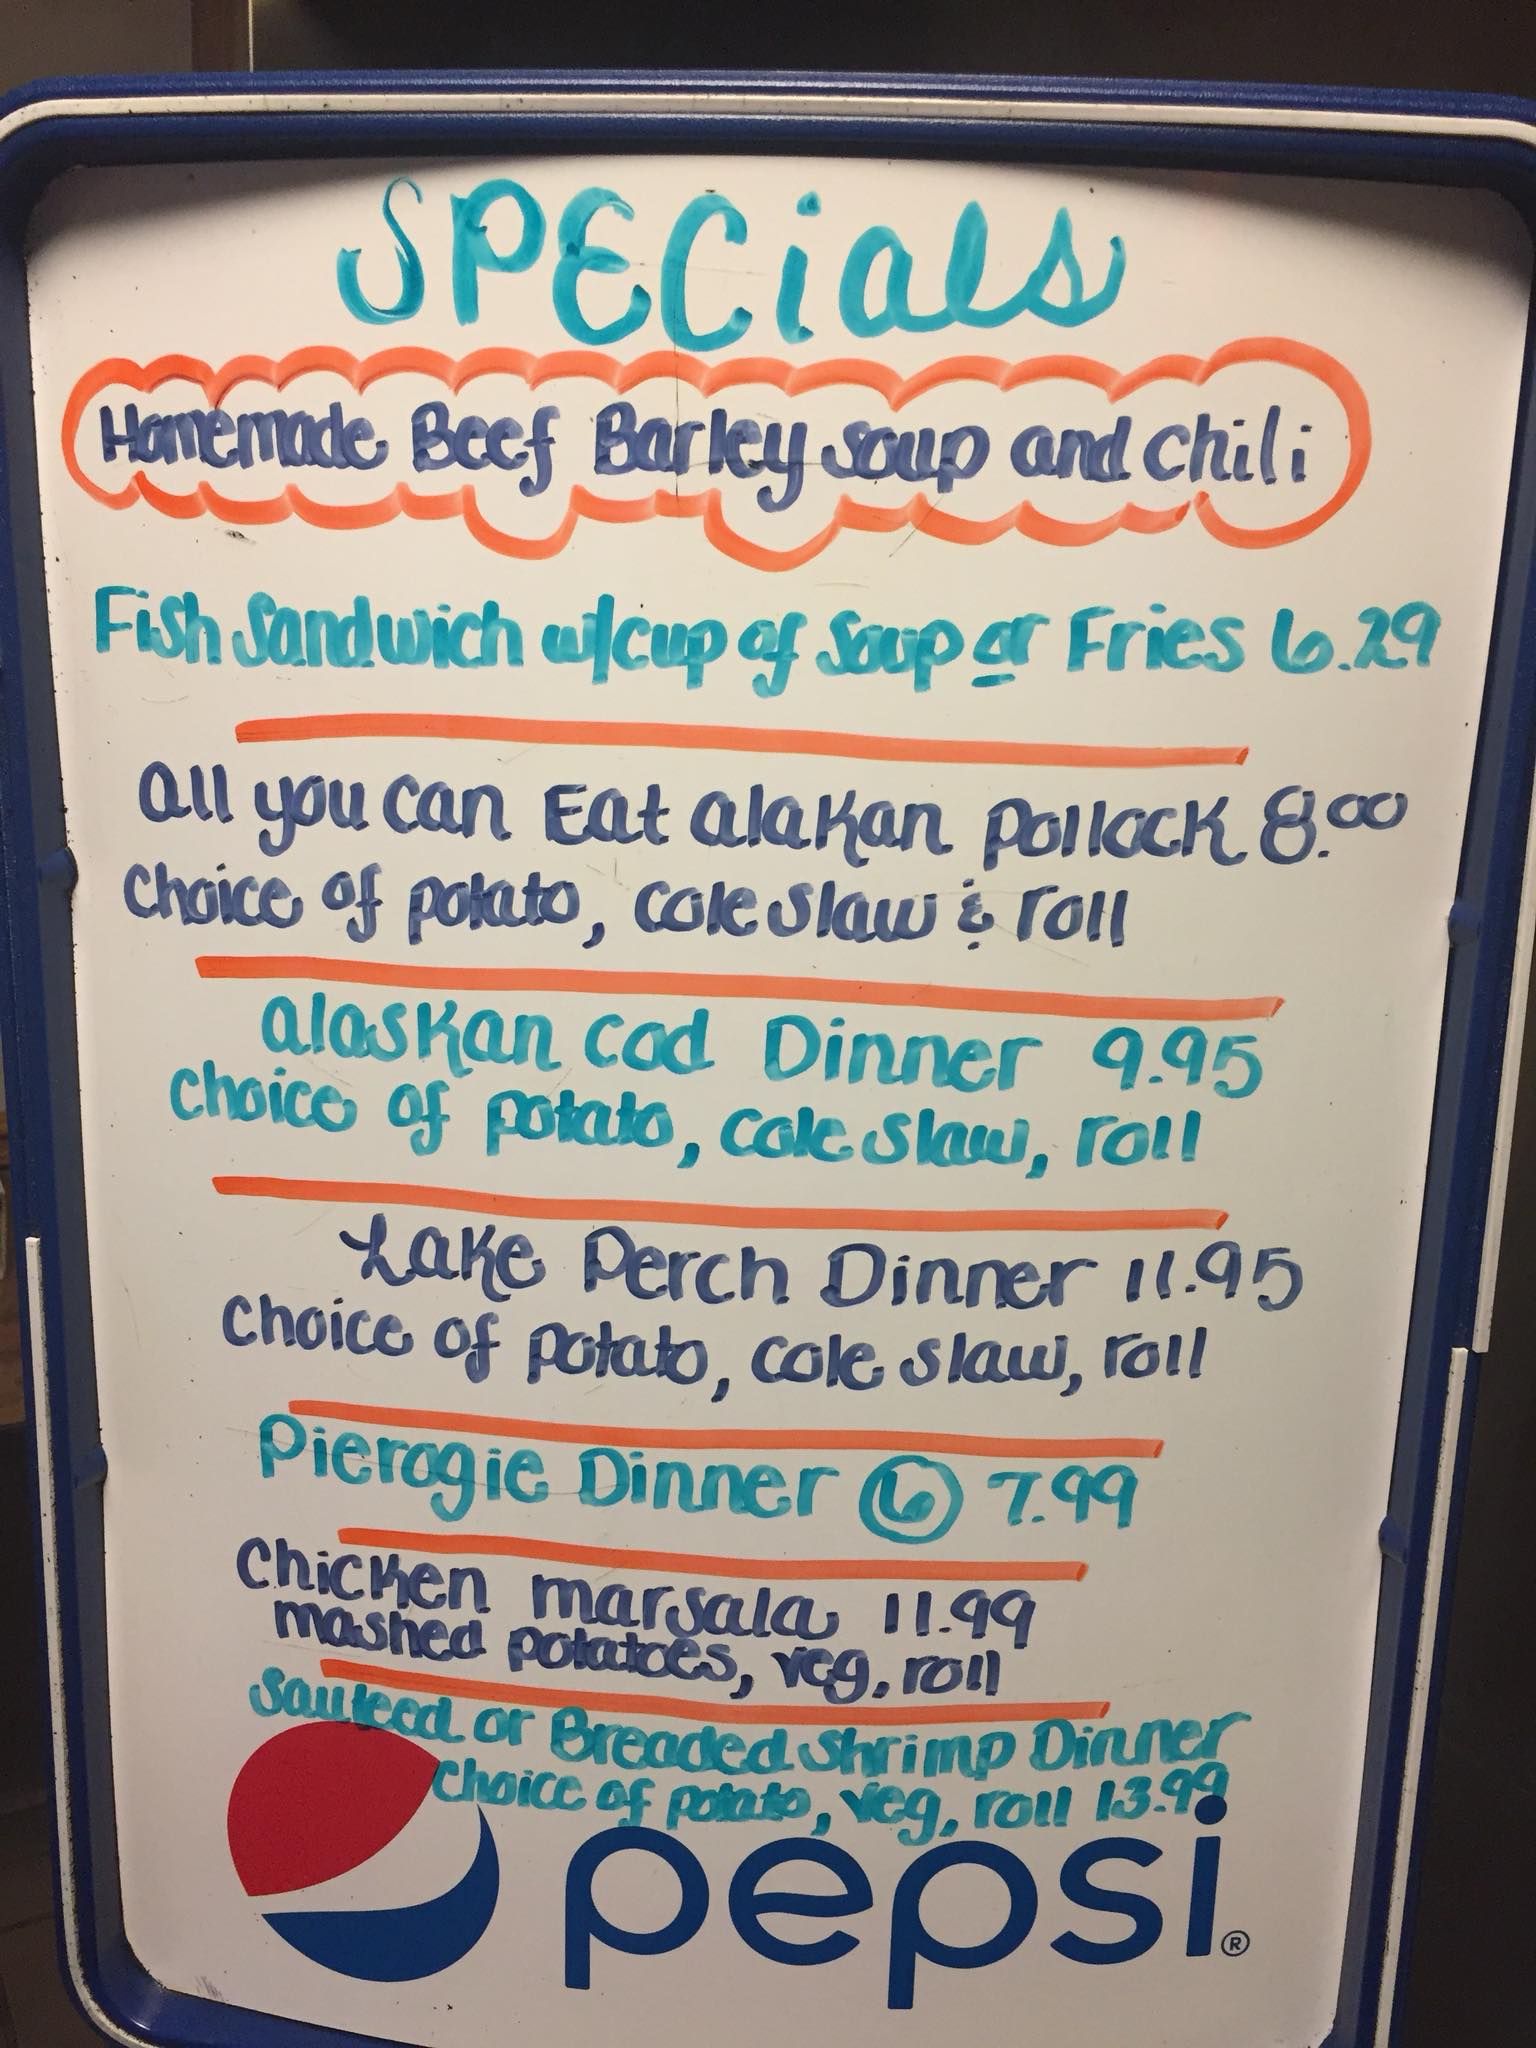 SPECials
Homemade Beef Barley soup and chili
Fish Sandwich w/cup of Soup or Fries 6.29
all you can Eat alaKan Pollock 8.00
choice of potato, cole slaw & roll
alaskan cod Dinner 9.95
choice of potato, cole slaw, roll
Lake Perch Dinner 11.95
choice of potato, cole slaw, roll
Pierogie Dinner 6 7.99
chicken marsala 11.99
mashed potatoes, veg, roll
Sauteed or Breaded Shrimp Dinner
choice of potato, veg, roll 13.99
pepsi®